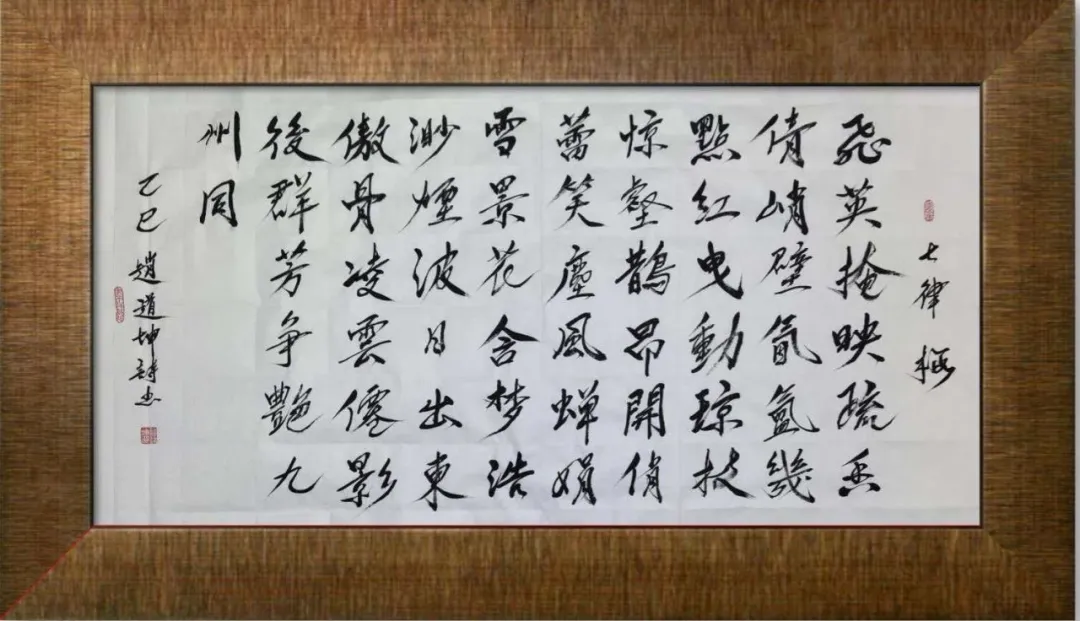 七律 梅
飛英掩映疏香
倩峭壁氤氲幾
點紅曳動琼枝
惊壑鵲昂開俏
蕾笑塵風蝉娟
雪景花含梦浩
渺煙波日出東
傲骨凌雲僊影
後群芳争艷九
州同
乙巳 趙道坤詩書